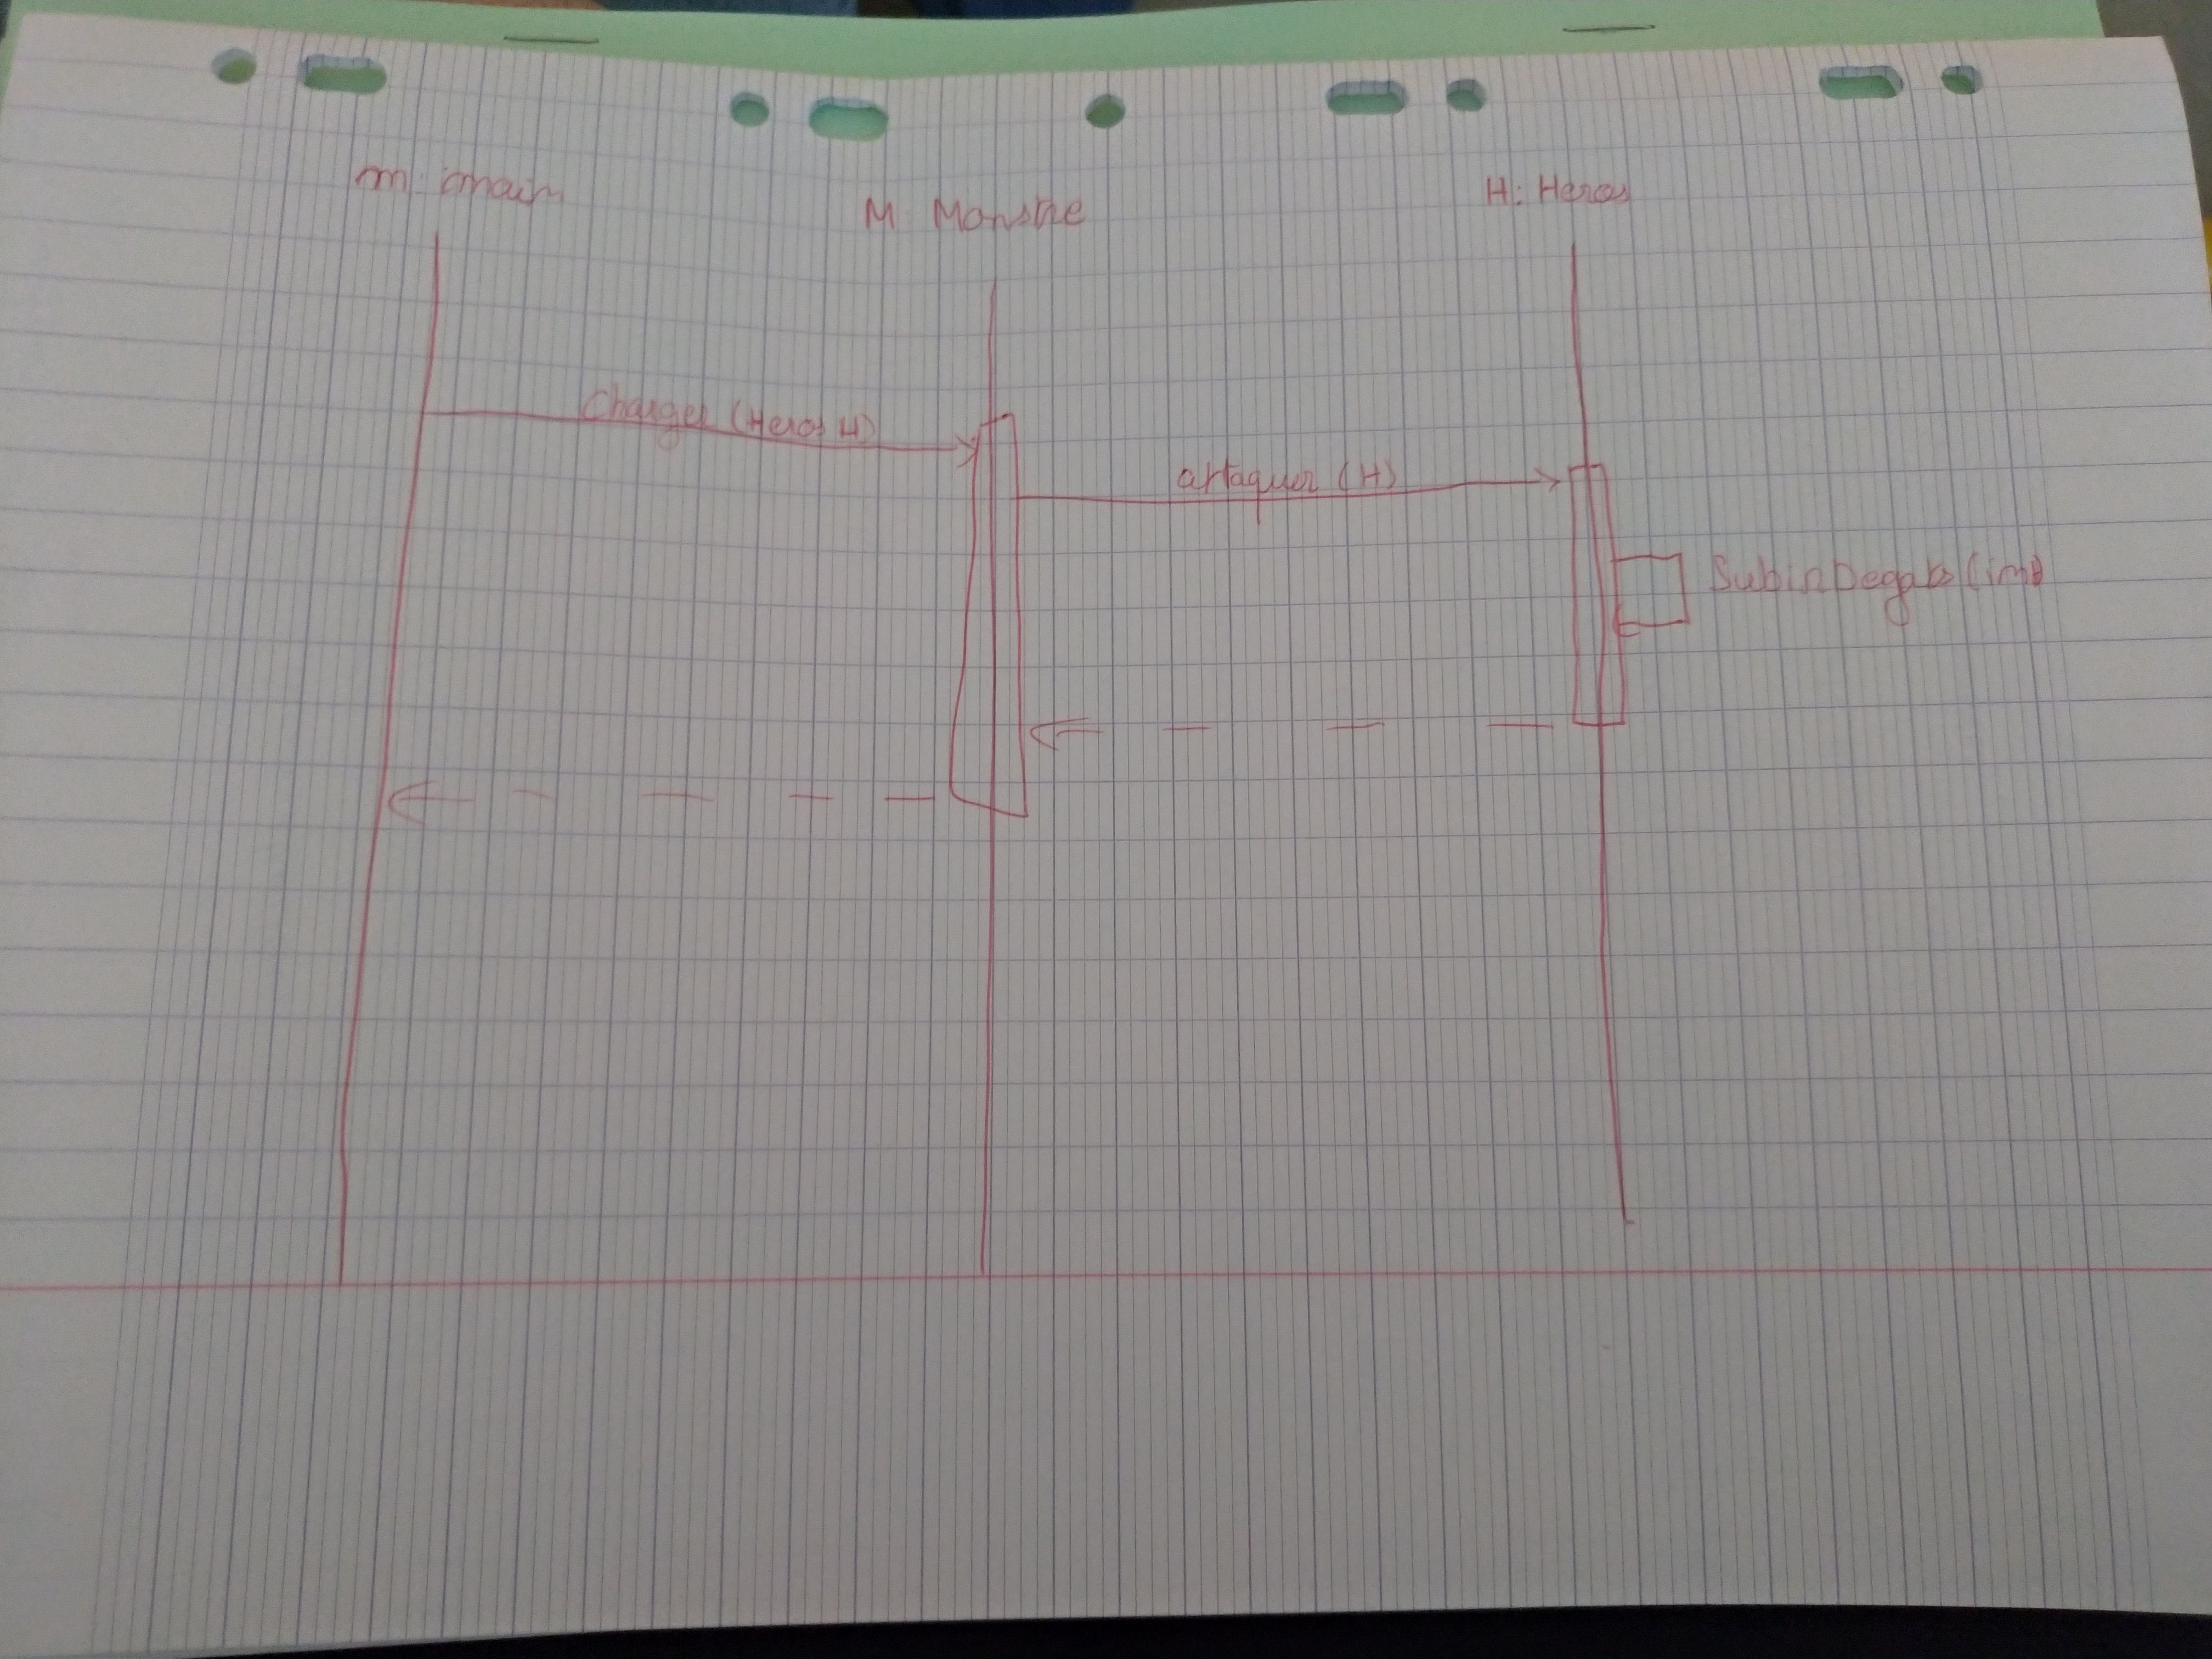 m: main
M: Monstre
H: Heros
Charger (Heros H)
attaquer (H)
SubirDegats (int)